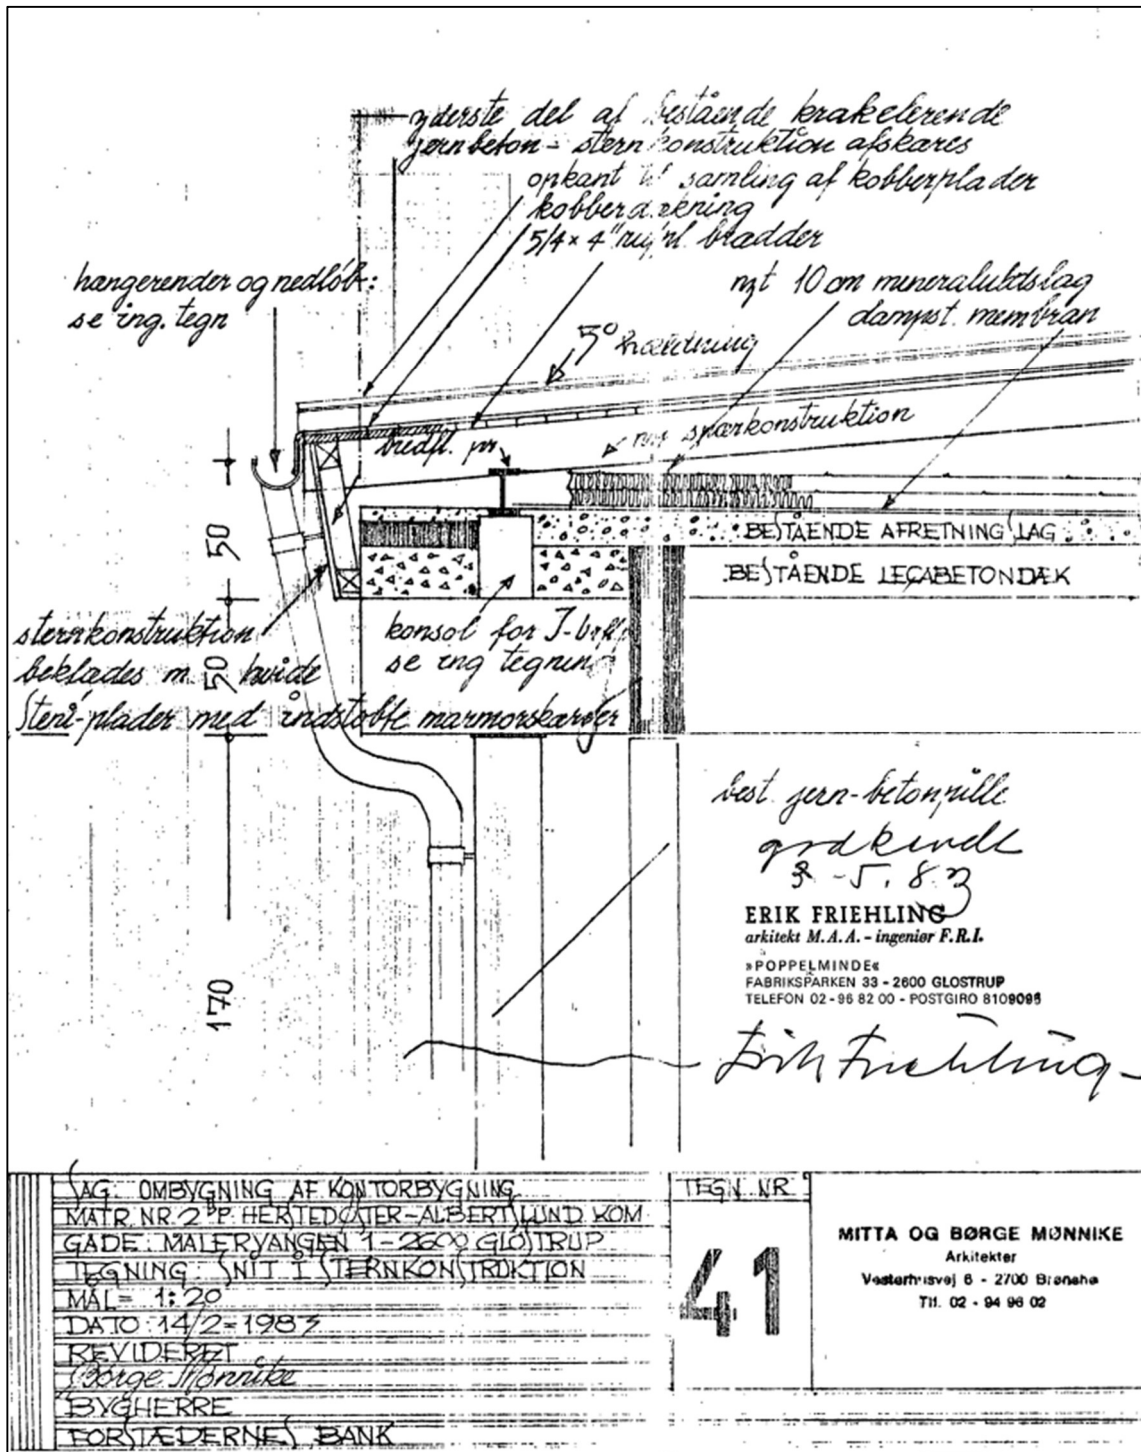 yderste del af bestående krakelerende
jernbeton - sternkonstruktion afskæres
opkant til samling af kobberplader
kobberdækning
5/4 x 4" ru/pl. brædder
hængerender og nedløb:
se ing. tegn
nyt 10 cm mineraluldslag
dampst. membran
5° hældning
ny spærkonstruktion
bredfl. pr
50
BESTÅENDE AFRETNINGSLAG
BESTÅENDE LECABETONDÆK
sternkonstruktion
beklædes m. hvide
Steni-plader med indstøbte marmorskærver
konsol for I-brfl
se ing tegning
50
best. jern-betonpille
godkendt
3-5.83
ERIK FRIEHLING
arkitekt M.A.A. - ingeniør F.R.I.
»POPPELMINDE«
FABRIKSPARKEN 33 - 2600 GLOSTRUP
TELEFON 02 - 96 82 00 - POSTGIRO 8109095
170
Erik Friehling
SAG: OMBYGNING AF KONTORBYGNING
MATR. NR. 2 P. HERSTEDØSTER-ALBERTSLUND KOM
GADE: MALERVANGEN 1-2600 GLOSTRUP
TEGNING: SNIT I STERNKONSTRUKTION
MÅL= 1:20
DATO: 14/2-1983
REVIDERET
Børge Mønnike
BYGHERRE
FORSTÆDERNES BANK
TEGN. NR
41
MITTA OG BØRGE MØNNIKE
Arkitekter
Vesterhusvej 6 - 2700 Brønshø
Tlf. 02 - 94 96 02